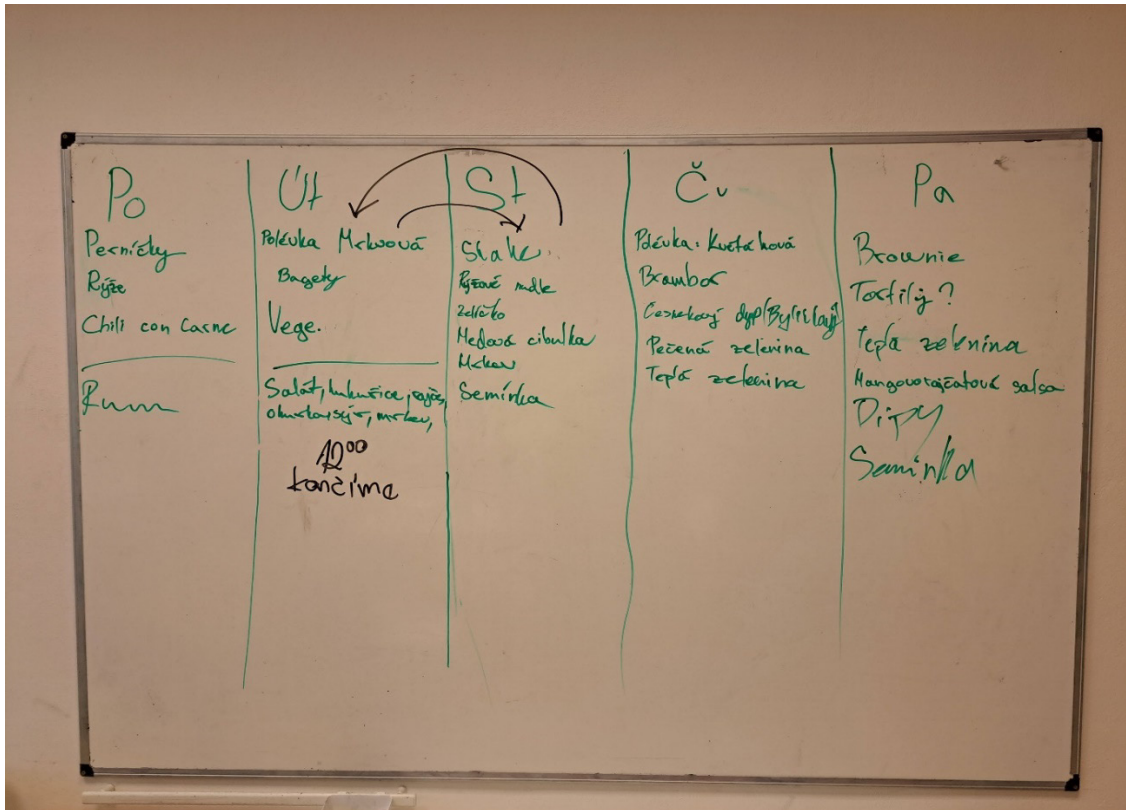 Po
Perníčky
Rýže
Chili con Carne
Rum
Út
Polévka Mrkvová
Bagety
Vege.
Salát, kukuřice, rajče,
okurka, sýr, mrkev,
12⁰⁰
končíme
St
Rýžové nudle
Zelíčko
Medová cibulka
Mrkev
Semínka
Čv
Polévka: Květáková
Brambor
Česnekový dyp/Bylinkový
Pečená zelenina
Teplá zelenina
Pa
Brownie
Tortilý?
Teplá zelenina
Mangovorajčatová salsa
Dipy
Semínka